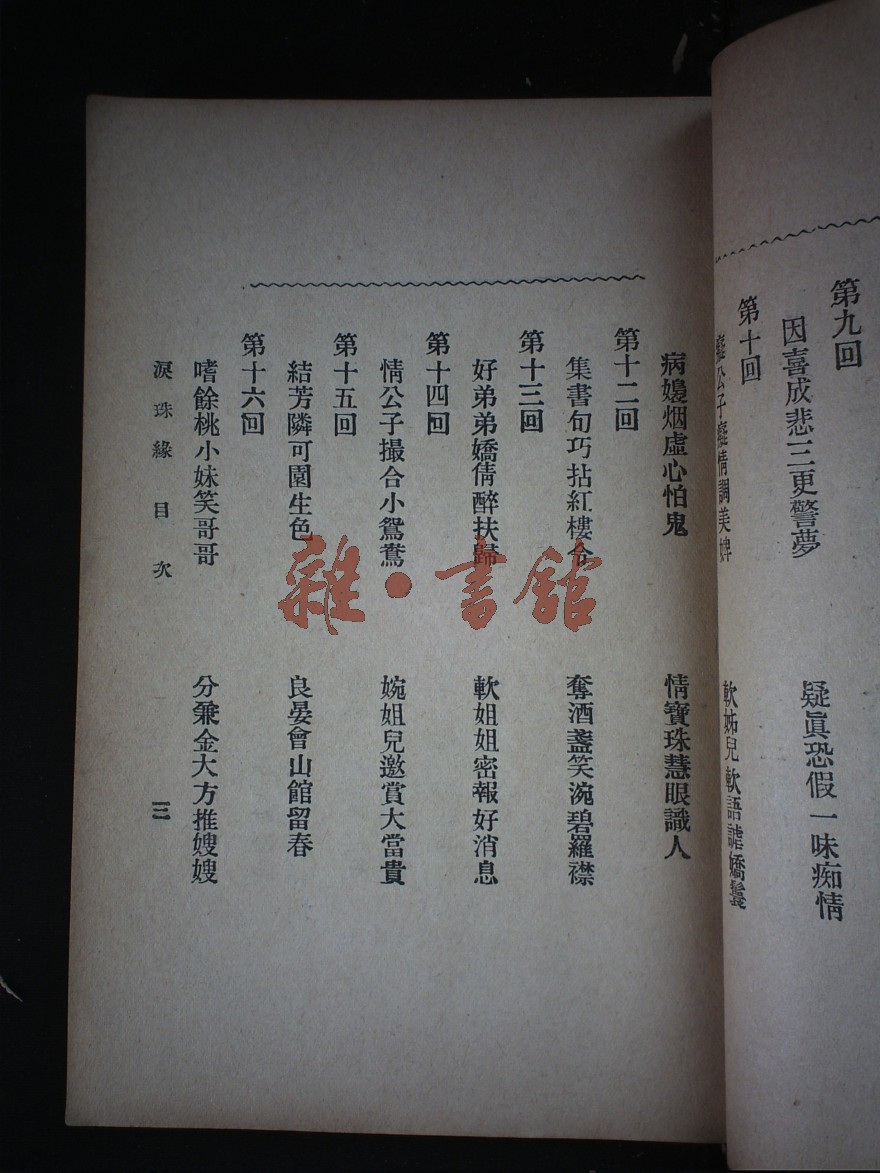 第九回
因喜成悲三更警夢　疑眞恐假一味痴情
第十回
癡公子癡情調美婢　軟姊兒軟語謔嬌鬟
病嫚烟虛心怕鬼　情寶珠慧眼識人
第十二回
集書句巧拈紅樓令　奪酒盞笑涴碧羅襟
第十三回
好弟弟嬌倩醉扶歸　軟姐姐密報好消息
第十四回
情公子撮合小鴛鴦　婉姐兒邀賞大當貴
第十五回
結芳隣可園生色　良晏會山館留春
第十六回
嗜餘桃小妹笑哥哥　分兼金大方推嫂嫂
淚珠緣　目次　三
雜·書館